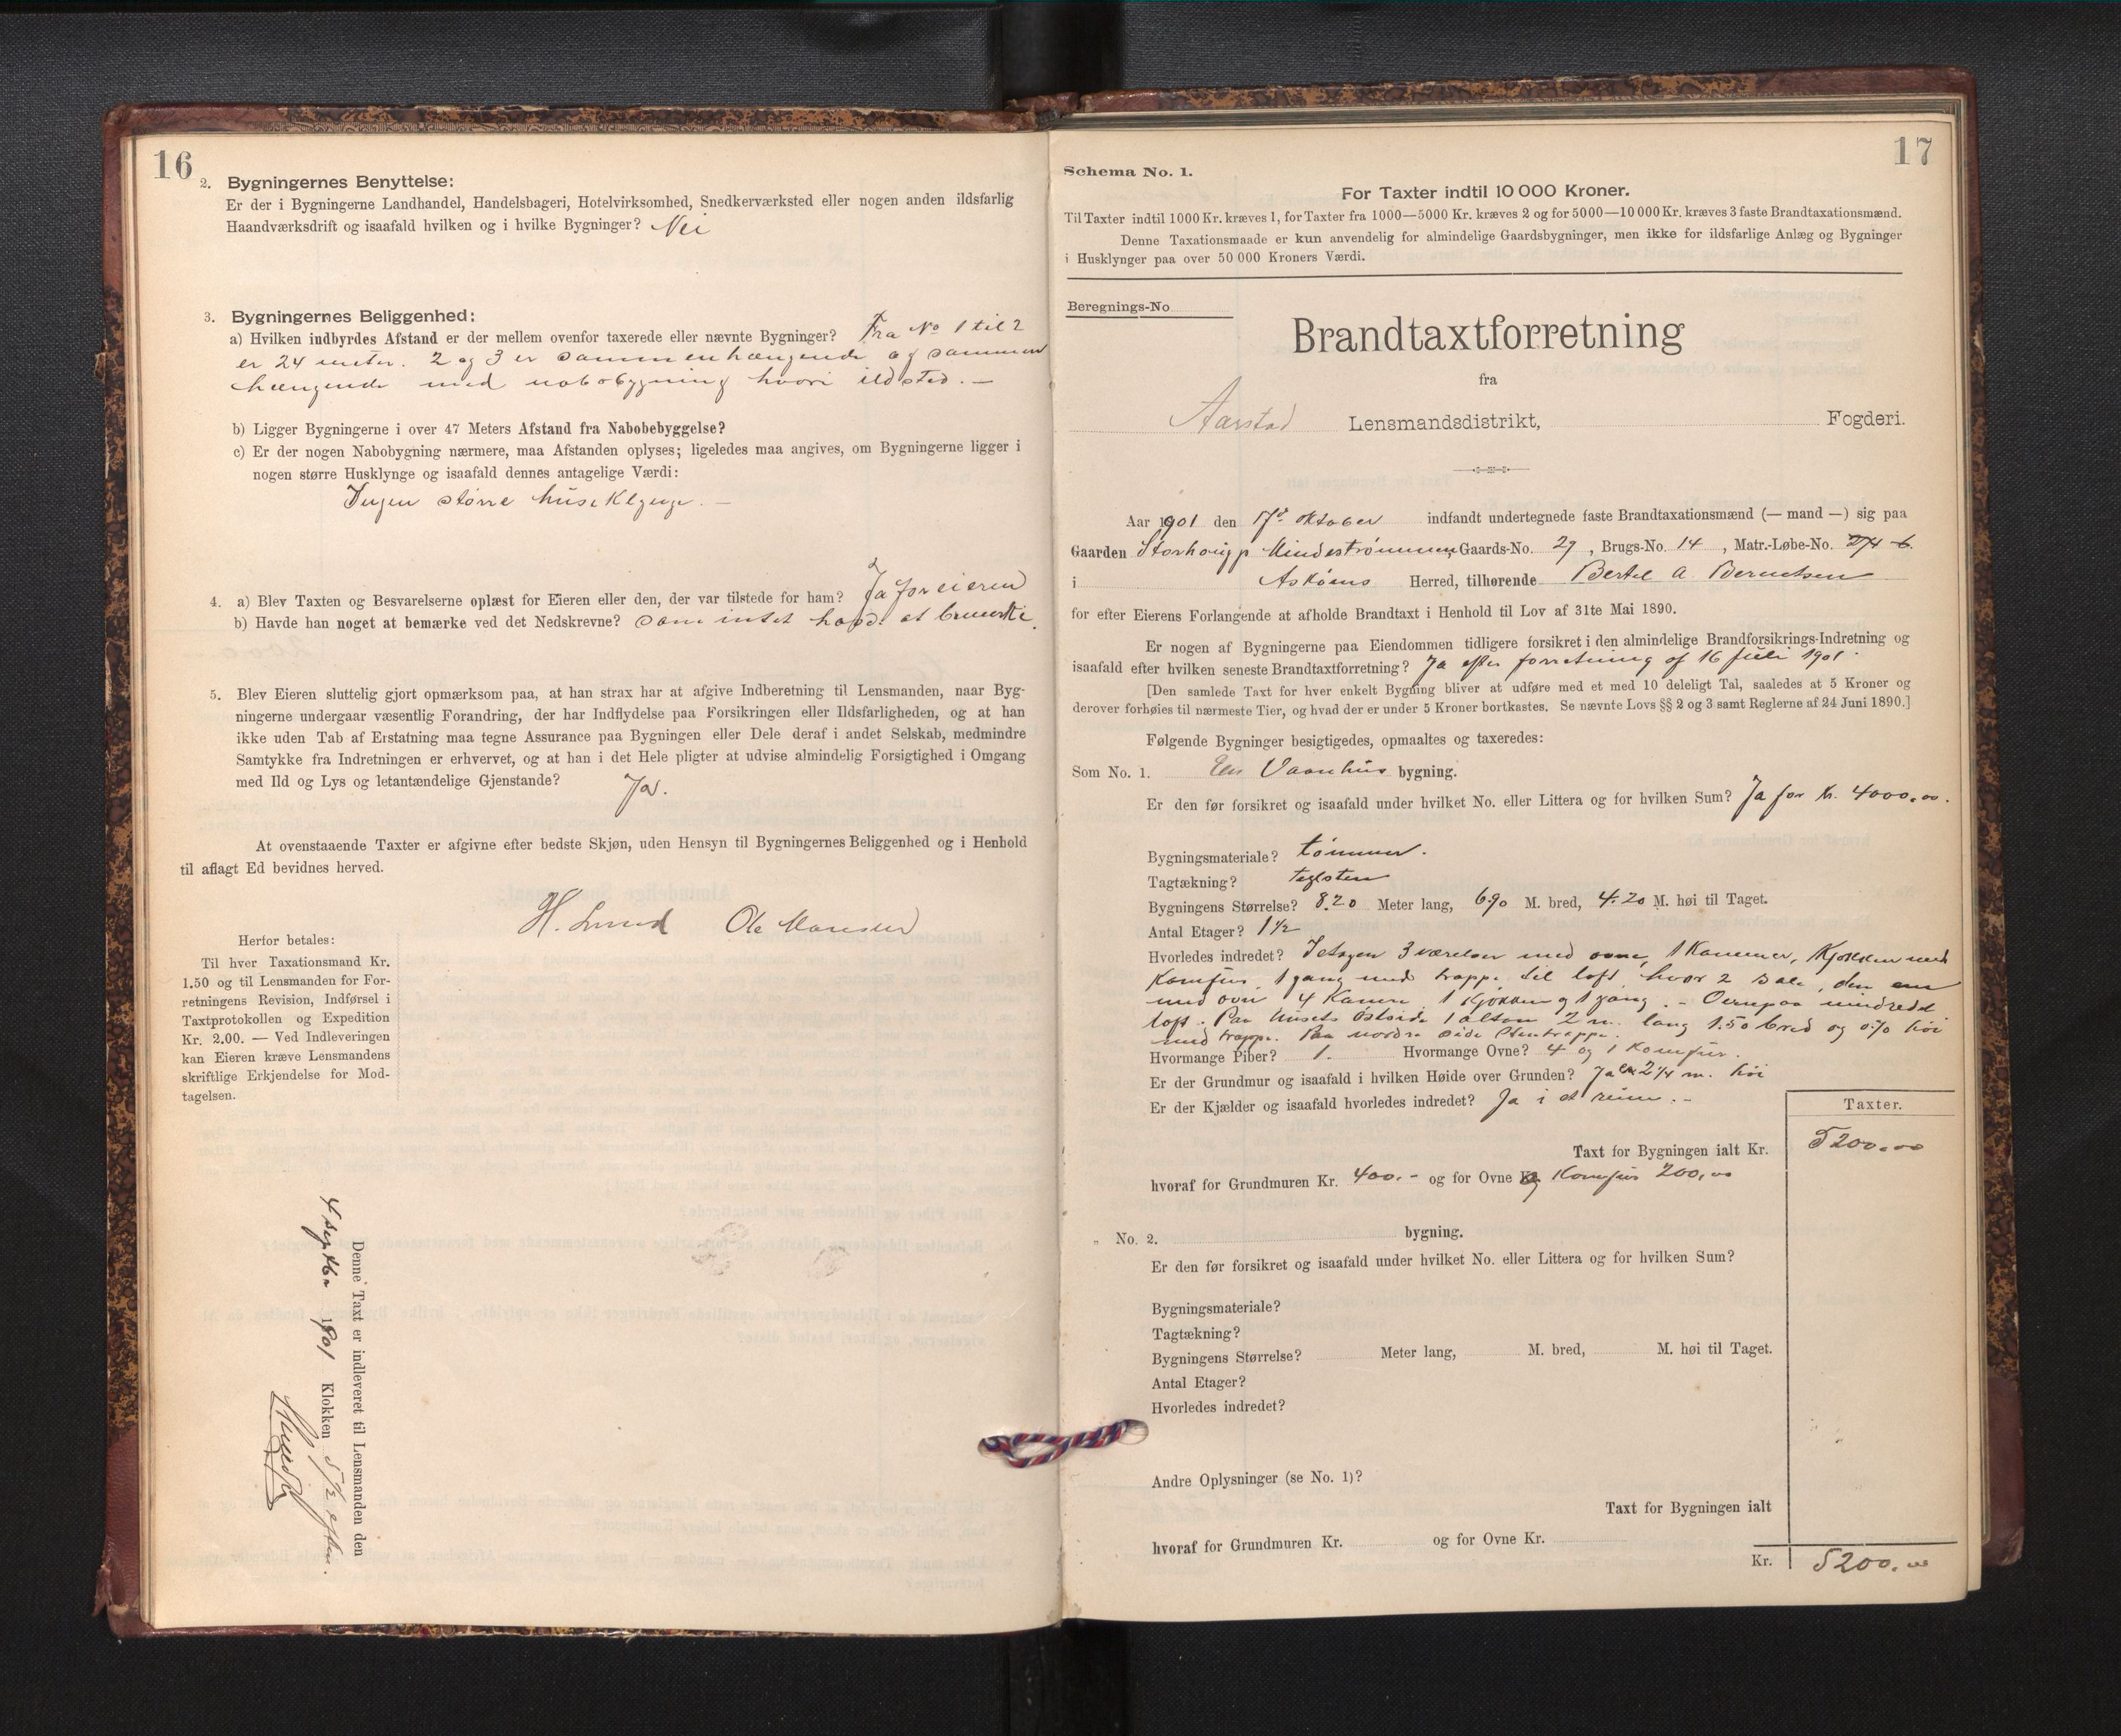 16
2. Bygningernes Benyttelse:
Er der i Bygningerne Landhandel, Handelsbageri, Hotelvirksomhed, Snedkerværksted eller nogen anden ildsfarlig
Haandværksdrift og isaafald hvilken og i hvilke Bygninger? Nei
3. Bygningernes Beliggenhed:
a) Hvilken indbyrdes Afstand er der mellem ovenfor taxerede eller nævnte Bygninger? Fra No 1 til 2
er 24 meter. 2 og 3 er sammenhængende og sammen
hængende med nabobygning hvori ildsted. —
b) Ligger Bygningerne i over 47 Meters Afstand fra Nabobebyggelse?
c) Er der nogen Nabobygning nærmere, maa Afstanden oplyses; ligeledes maa angives, om Bygningerne ligger i
nogen større Husklynge og isaafald dennes antagelige Værdi:
Ingen større huseklynge. —
4. a) Blev Taxten og Besvarelserne oplæst for Eieren eller den, der var tilstede for ham? Ja for eieren
b) Havde han noget at bemærke ved det Nedskrevne? som intet havde at bemerke.
5. Blev Eieren sluttelig gjort opmærksom paa, at han strax har at afgive Indberetning til Lensmanden, naar Byg-
ningerne undergaar væsentlig Forandring, der har Indflydelse paa Forsikringen eller Ildsfarligheden, og at han
ikke uden Tab af Erstatning maa tegne Assurance paa Bygningen eller Dele deraf i andet Selskab, medmindre
Samtykke fra Indretningen er erhvervet, og at han i det Hele pligter at udvise almindelig Forsigtighed i Omgang
med Ild og Lys og letantændelige Gjenstande? Ja.
At ovenstaaende Taxter er afgivne efter bedste Skjøn, uden Hensyn til Bygningernes Beliggenhed og i Henhold
til aflagt Ed bevidnes herved.
H. Lund Ole Monsen
Herfor betales:
Til hver Taxationsmand Kr.
1.50 og til Lensmanden for For-
retningens Revision, Indførsel i
Taxtprotokollen og Expedition
Kr. 2.00. — Ved Indleveringen
kan Eieren kræve Lensmandens
skriftlige Erkjendelse for Mod-
tagelsen.
Denne Taxt er indleveret til Lensmanden den
4 septbr 1901 Klokken 5 1/2 eftm.
17
Schema No. 1.
For Taxter indtil 10 000 Kroner.
Til Taxter indtil 1000 Kr. kræves 1, for Taxter fra 1000—5000 Kr. kræves 2 og for 5000—10 000 Kr. kræves 3 faste Brandtaxationsmænd.
Denne Taxationsmaade er kun anvendelig for almindelige Gaardsbygninger, men ikke for ildsfarlige Anlæg og Bygninger
i Husklynger paa over 50 000 Kroners Værdi.
Beregnings-No
Brandtaxtforretning
fra
Aarstad Lensmandsdistrikt, Fogderi.
Aar 1901 den 17de oktober indfandt undertegnede faste Brandtaxationsmænd (— mand —) sig paa
Gaarden Storhoug p Mindestrømmen Gaards-No. 29, Brugs-No. 14, Matr.-Løbe-No. 274 b.
i Askøens Herred, tilhørende Bertel A. Berntsen
for efter Eierens Forlangende at afholde Brandtaxt i Henhold til Lov af 31te Mai 1890.
Er nogen af Bygningerne paa Eiendommen tidligere forsikret i den almindelige Brandforsikrings-Indretning og
isaafald efter hvilken seneste Brandtaxtforretning? Ja efter forretning af 16 juli 1901.
[Den samlede Taxt for hver enkelt Bygning bliver at udføre med et med 10 deleligt Tal, saaledes at 5 Kroner og
derover forhøies til nærmeste Tier, og hvad der er under 5 Kroner bortkastes. Se nævnte Lovs §§ 2 og 3 samt Reglerne af 24 Juni 1890.]
Følgende Bygninger besigtigedes, opmaaltes og taxeredes:
Som No. 1. En Vaanhus bygning.
Er den før forsikret og isaafald under hvilket No. eller Littera og for hvilken Sum? Ja for Kr. 4000.00.
Bygningsmateriale? tømmer.
Tagtækning? teglsten
Bygningens Størrelse? 8.20 Meter lang, 6.90 M. bred, 4.20 M. høi til Taget.
Antal Etager? 1 1/2
Hvorledes indredet? I etagen 3 værelser med ovne, 1 Kammer, Kjøkken med
Komfur, 1 gang med trappe til loft, hvor 2 sale, den ene
med ovn 4 Kamre 1 Kjøkken og 1 gang. – Overpaa uindredet
loft. Paa husets østside 1 altan 2 m. lang 1.50 bred og 0.70 høi
med trappe. Paa nordre side Stentrappe.
Hvormange Piber? 1. Hvormange Ovne? 4 og 1 Komfur.
Er der Grundmur og isaafald i hvilken Høide over Grunden? Ja ca 2 1/4 m. høi
Er der Kjælder og isaafald hvorledes indredet? Ja i et rum. –
Taxter.
Taxt for Bygningen ialt Kr. 5200.00
hvoraf for Grundmuren Kr. 400.– og for Ovne og Komfur 200,00
„ No. 2. bygning.
Er den før forsikret og isaafald under hvilket No. eller Littera og for hvilken Sum?
Bygningsmateriale?
Tagtækning?
Bygningens Størrelse? Meter lang, M. bred, M. høi til Taget.
Antal Etager?
Hvorledes indredet?
Andre Oplysninger (se No. 1)?
Taxt for Bygningen ialt
hvoraf for Grundmuren Kr. og for Ovne Kr.
Kr. 5200.00